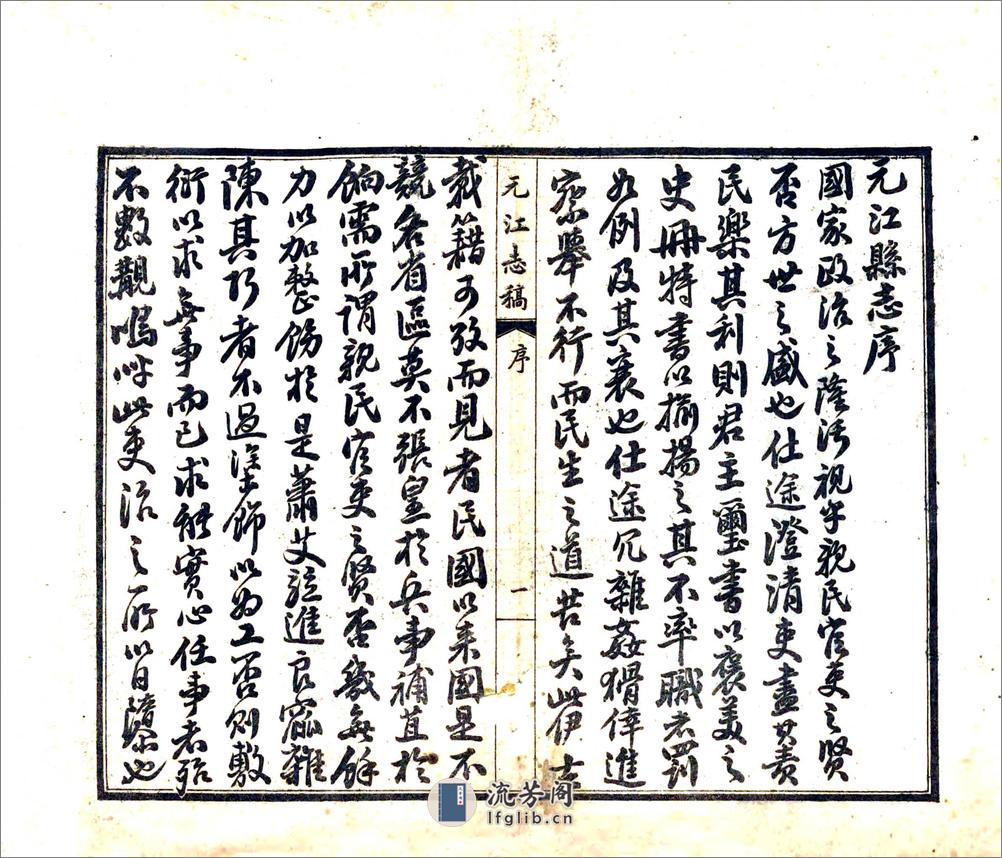 元江縣志序
國家政治之隆污視乎親民官吏之賢
否方世之盛也仕途澄清吏盡其責
民樂其利則君主璽書以褒美之
史冊特書以揄揚之其不率職者罰
如例及其衰也仕途冗雜姦猾倖進
察舉不行而民生之道苦矣此伊古
元江志稿
序
一
載籍可攷而見者民國以來國是不
競各省區莫不張皇於兵事補苴於
餉需所謂親民官吏之賢否幾無餘
力以加整飭於是蕭艾竝進良窳雜
陳其巧者不過塗飾以為工否則敷
衍以求無事而已求能實心任事者殆
不數覯嗚呼此吏治之所以日隳也
流芳阁
lfglib.cn